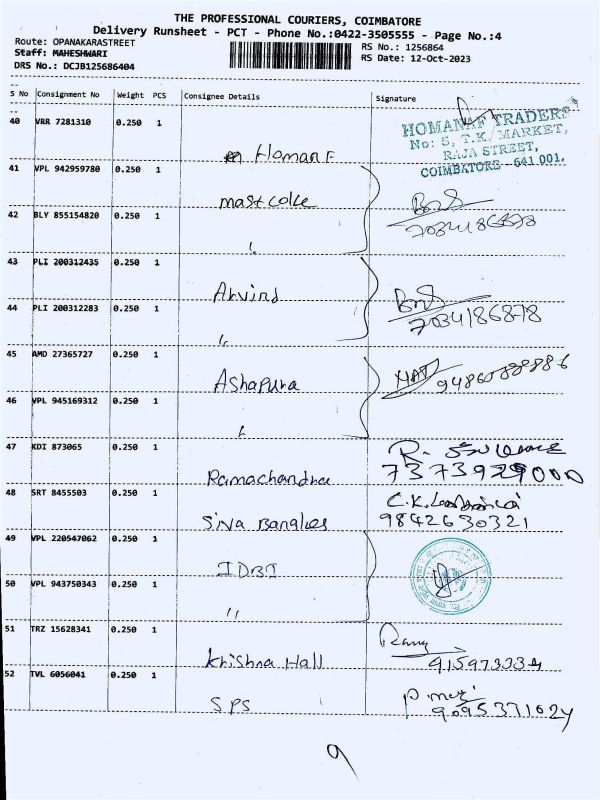 THE PROFESSIONAL COURIERS, COIMBATORE
Delivery Runsheet - PCT - Phone No.:0422-3505555 - Page No.:4
Route: OPANAKARASTREET
RS No.: 1256864
Staff: MAHESHWARI
RS Date: 12-Oct-2023
DRS No.: DCJB125686404
S No Consignment No Weight PCS Consignee Details Signature
40 VRR 7281310 0.250 1
HOMANAF TRADERS
No: 5, T.K. MARKET,
RAJA STREET,
COIMBATORE - 641 001.
41 VPL 942959780 0.250 1
42 BLY 855154820 0.250 1
43 PLI 200312435 0.250 1
Arvind
7034186878
44 PLI 200312283 0.250 1
45 AMD 27365727 0.250 1
Ashapura
46 VPL 945169312 0.250 1
47 KDI 873065 0.250 1
Ramachandra
48 SRT 8455503 0.250 1
Siva Bangles 9842630321
49 VPL 220547062 0.250 1
IDBI
50 VPL 943750343 0.250 1
"
51 TRZ 15628341 0.250 1
Krishna Hall
52 TVL 6056041 0.250 1
SPS
9